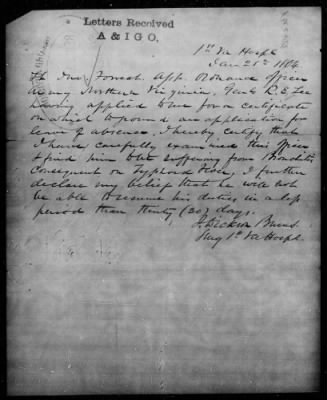 Letters Received
A & I G O.
1st Va Hospl
Jan 21st 1864
Lt Jno. Forrest App. Ordnance Officer
Army Northern Virginia, Genl R. E. Lee
having applied to me for a certificate
on which to ground an application for
leave of absence, I hereby certify that
I have carefully examined this Officer
& find him still suffering from Bronchitis
Consequent on Typhoid Fever, I further
declare my belief that he will not
be able to resume his duties in a less
period than thirty (30) days.
J. Dickson
Surg 1st Va Hospl